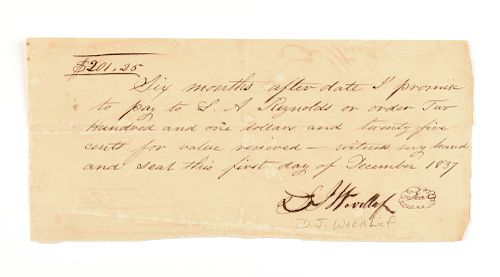 $201.25
Six months after date I promise
to pay to S. A Reynolds or order Two
hundred and one dollars and twenty five
cents for value recieved – witness my hand
and seal this first day of December 1837
D J Woodlief Seal
D. J. Woodlief